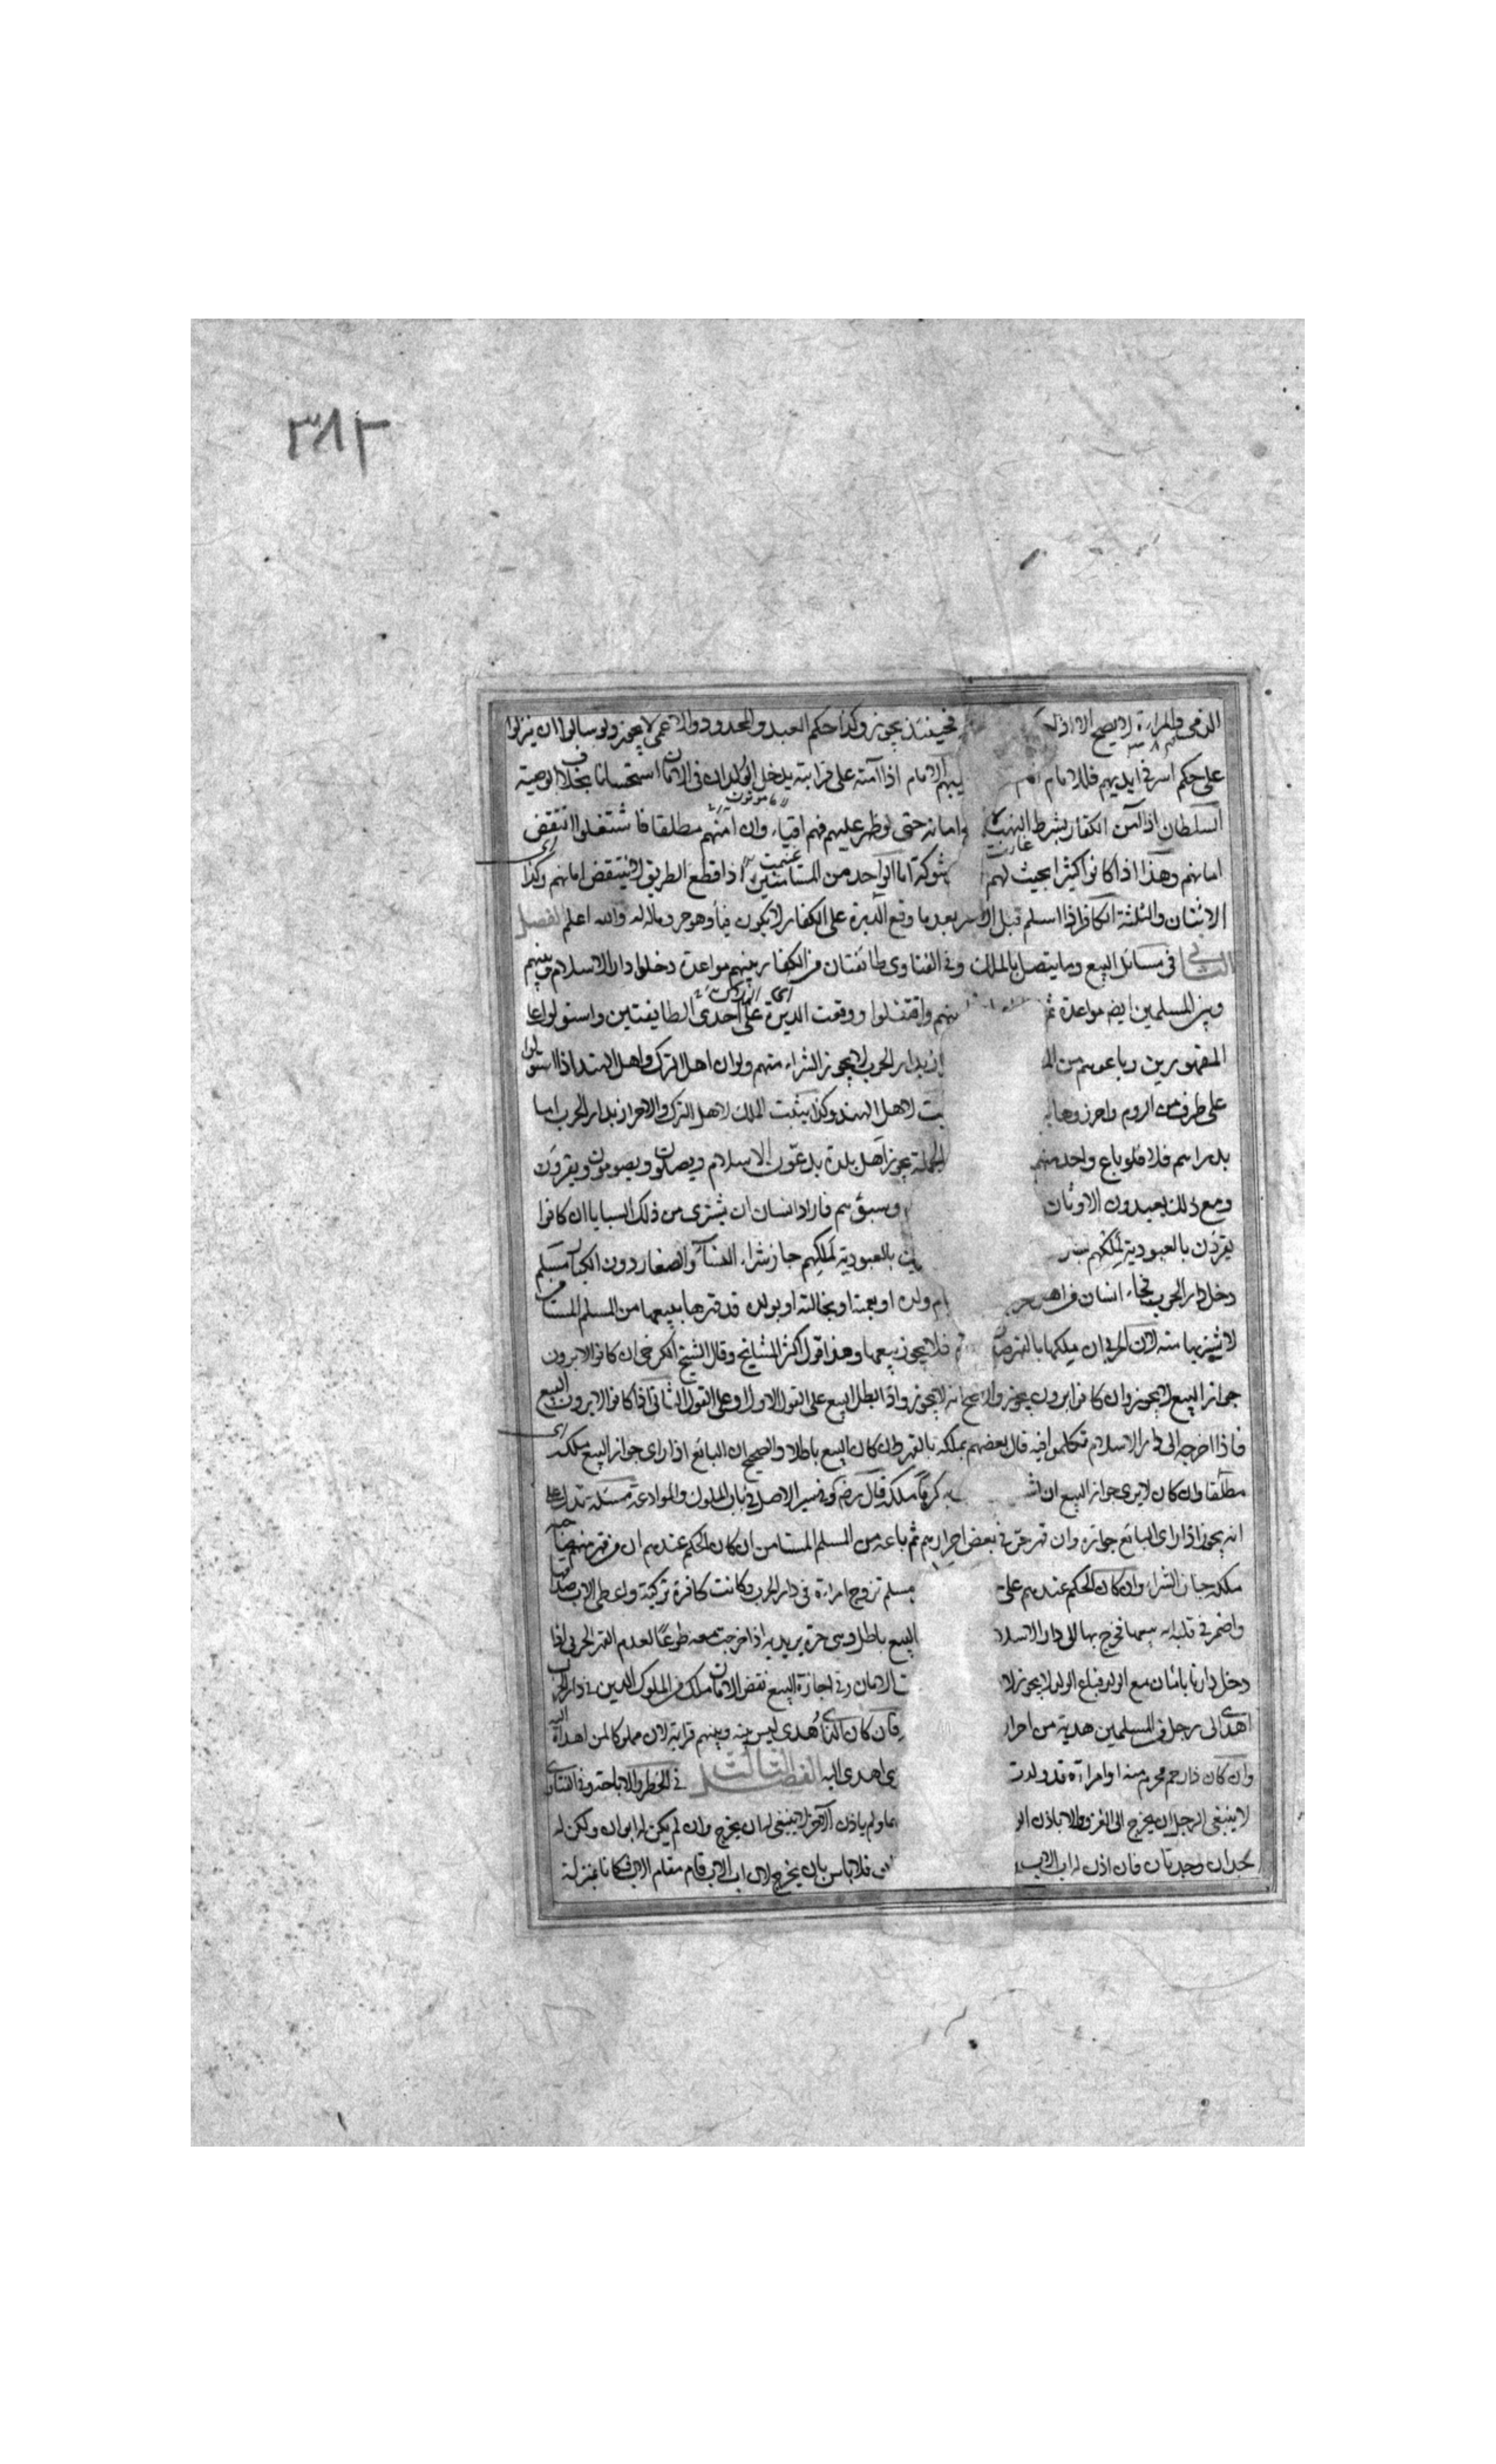 ٣٨٢
الذمي والمراءة لا يصح الا اذا فحينئذ يجوز وكذا حكم العبد والمحدود والاعمى لا يجوز ولو سالوا ان ينزلوا
على حكم اسر في ايديهم فللامام الامام اذا آمنه على قرابته يدخل الوالدان في الامان استحسانا بخلاف الوصية
السلطان اذا آمن الكفار بشرط وامانه حتى لو ظهر عليهم فهم افياء وان امنهم مطلقا فاشتغلوا انتقض
امانهم وهذا اذا كانوا كثيرا بحيث لهم شوكة اما الواحد من المستامنين اذا قطع الطريق لا ينتقض امانهم وكذا
الاثنان والثلثة الكافر اذا اسلم قبل الاسر بعد ما وقع الدبرة على الكفار لا يكون فيأ وهو حر وماله له والله اعلم الفصل
الثاني في مسائل البيع وما يتصل بالملك وفي الفتاوى طائفتان من الكفار بينهم مواعدة دخلوا دار الاسلام وبينهم
وبين المسلمين ايضا مواعدة واقتتلوا ووقعت الدبرة على احدى الطايفتين واستولوا على
المقهورين وباعوهم من بدار الحرب لا يجوز الشراء منهم ولو ان اهل الترك واهل الهند اذا استولوا
على طرف من الروم واحرزوها لاهل الهند وكذا يثبت الملك لاهل الترك والاحراز بدار الحرب اما
بدراسم فلا فلو باع واحد منهم يجوز اهل بلدة يدعون الاسلام ويصلون ويصومون ويقرؤن
ومع ذلك يعبدون الاوثان وسبوهم فاراد انسان ان يشترى من ذلك السبايا ان كانوا
يقرون بالعبودية لملكهم بالعبودية لملكهم جاز شراء النسآء والصغار دون الكبار مسلم
دخل دار الحرب فجاء انسان من اهل ام ولده او بعمته او بخالته او بولده قد قهرها ببيعها من المسلم المستامن
لا يشتريها منه لان الحربي ان ملكها بالقهر فلا يجوز بيعها وهذا قول اكثر المشايخ وقال الشيخ الكرخى ان كانوا لا يرون
جواز البيع لا يجوز وان كانوا يرون يجوز والاصح انه لا يجوز واذا بطل البيع على القول الاول وعلى القول الثاني اذا كانوا لا يرون البيع
فاذا اخرجه الى دار الاسلام تكلموا فيه قال بعضهم يملكه بالقهر وان كان البيع باطلا والصحيح ان البائع اذا راى جواز البيع ملكه
مطلقا وان كان لا يرى جواز البيع ان كرها ملكه قال رضه وفي سير الاصل في باب الملوك والموادعة مسئلة تدل على
انه يجوز اذا راى البائع جوازه وان قهر حربي بعض احرارهم ثم باعه من المسلم المستامن ان كان الحكم عندهم ان من قهر منهم صاحبه
ملكه جاز الشراء وان كان الحكم عندهم على مسلم تزوج امراءة في دار الحرب وكانت كافرة تركية واعطى الاب صداقها
واضمر في قلبه انه يبيعها فخرج بها الى دار الاسلا البيع باطل وهى حرة يريد به اذا خرجت معه طوعا لعدم القهر الحربى اذا
دخل دارنا بامان مع الولد فباع الولد لا يجوز لا الامان وفي اجازة البيع نقض الامان ملك من الملوك الذين في دار الحرب
اهدى الى رجل من المسلمين هدية من احرار فان كان الذى اهدى ليس بينه وبينهم قرابة لان مملوكا لمن اهداه اليه
وان كان ذا رحم محرم منه او امراءة قد ولدت اهدى اليه الفصل الثالث في الحظر والاباحة وفي الفتاوى
لا ينبغى الرجل ان يخرج الى الغزو الا باذن ولم ياذن الآخر لا ينبغى له ان يخرج وان لم يكن له ابوان ولكن له
جدان وجدتان فان اذن له اب الاب فلا باس بان يخرج لان اب الاب قام مقام الاب فكانا بمنزلة